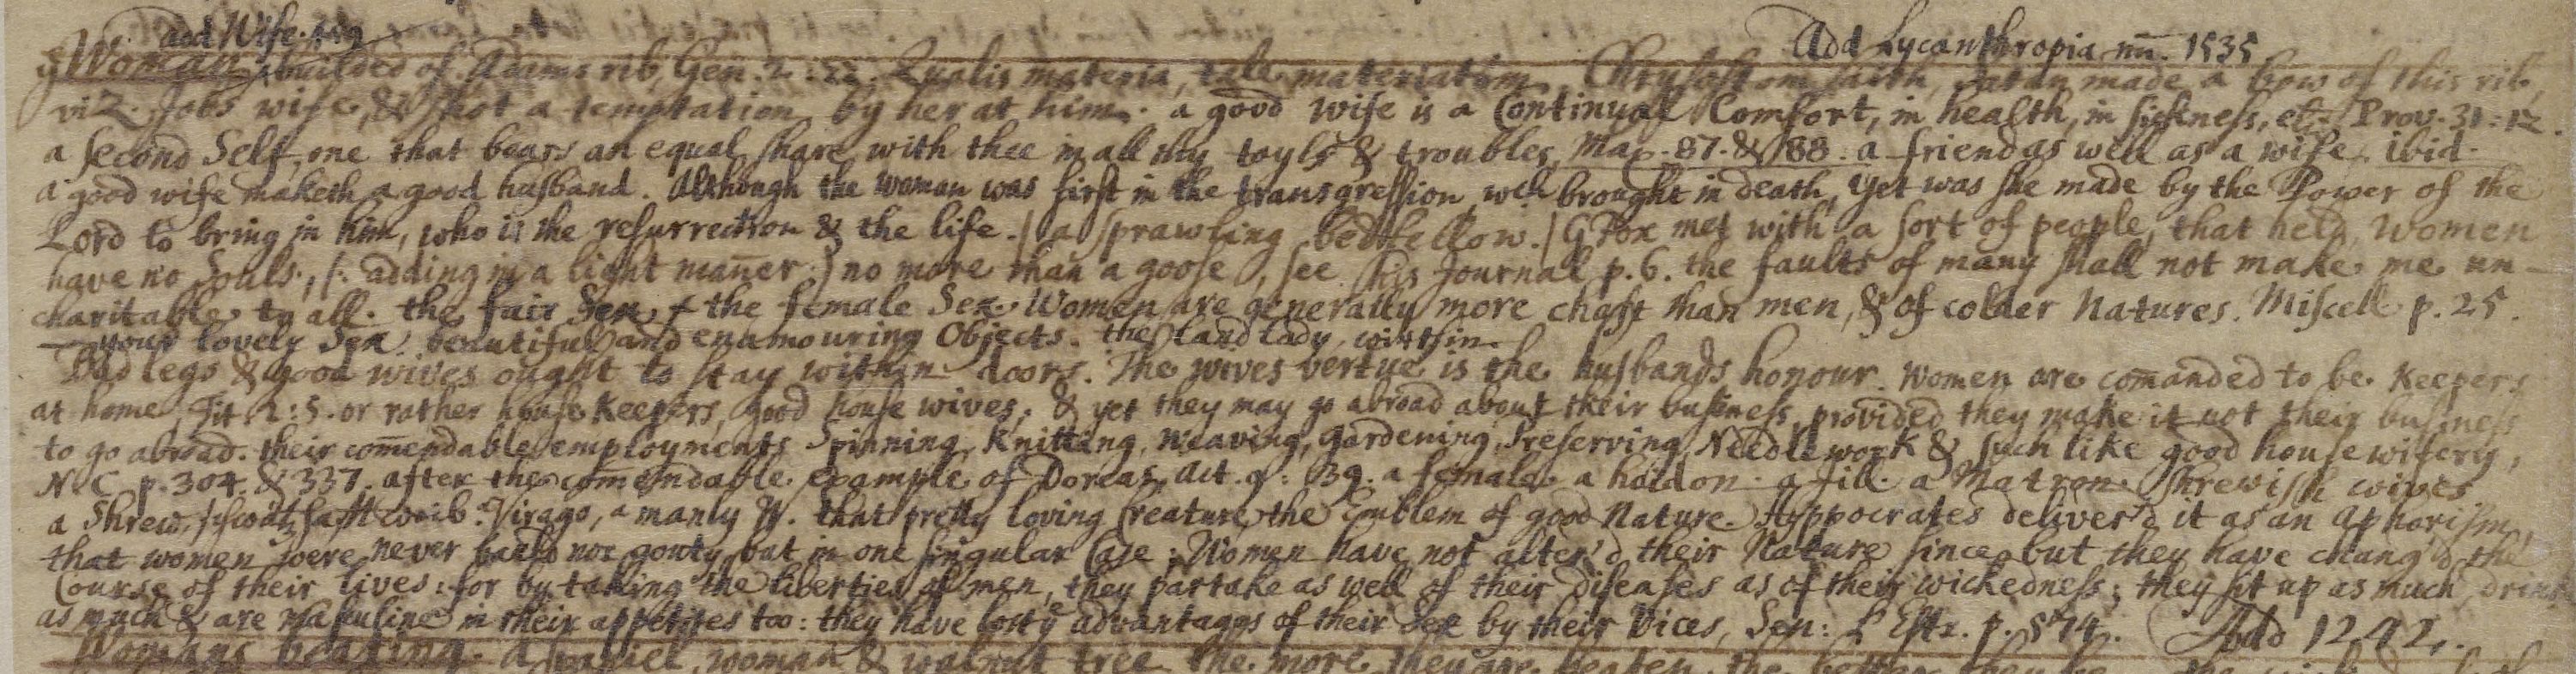 add Wife. 449
Add Lycanthropia nū. 1535
Woman, builded of Adams rib, Gen. 2: 22. Qualis materia, tale materiatum. Chrysostom saith, Satan made a bow of this rib,
viz. Jobs wife, & shot a temptation by her at him. a good wife is a Continual Comfort, in health, in sickness, etc. Prov. 31: 12.
a second Self, one that bears an equal share with thee in all thy toyls & troubles, Max. 87. & 88. a friend as well as a wife. ibid.
a good wife maketh a good husband. Although the woman was first in the transgression, wch brought in death, yet was she made by the Power of the
Lord to bring in him, who is the resurrection & the life./ a sprawling bedfellow./ G Fox met with a sort of people, that held, Women
have no Souls, /: adding in a light maner:/ no more than a goose, see his Journal p. 6. the faults of many shall not make me un-
charitable to all. the fair Sex, the female Sex. Women are generally more chast than men, & of colder Natures. Miscell. p. 25.
your lovely Sex. beautiful and enamouring Objects. the Landlady, wirthin.
Bad legs & good wives ought to stay within doors. The wives vertue is the husbands honour. Women are comanded to be Keepers
at home, Tit 2: 5. or rather house Keepers, good house wives; & yet they may go abroad about their business, provided they make it not their business
to go abroad. their comendable employments Spinning, Knitting, Weaving, Gardening, Preserving, Needlework & such like good housewifery,
N. C. p. 304. & 337. after the comendable example of Dorcas, Act. 9: 39. a female. a hoidon. a Jill. a Matron. Shrewish wives
a Shrew, schwatzhafft weib. Virago, a manly W. that pretty loving Creature, the Emblem of good Nature. Hyppocrates deliver'd it as an Aphorism,
that women were never bald nor gouty, but in one singular Case; Women have not alter'd their Nature since, but they have chang'd the
Course of their lives: for by taking the liberties of men, they partake as well of their diseases as of their wickedness; they sit up as much, drink
as much & are Masculine in their appetites too: they have lost ye advantages of their Sex by their Vices, Sen: L'Estr. p. 514. Add 1242.
Womans beating. a Spaniel, woman & walnut tree, the more they are beaten, the better they be.